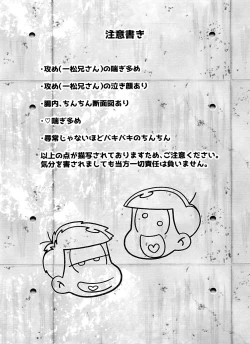 注意書き
・攻め(一松兄さん)の喘ぎ多め
・攻め(一松兄さん)の泣き顔あり
・腸内、ちんちん断面図あり
・♡喘ぎ多め
・尋常じゃないほどバキバキのちんちん
以上の点が描写されておりますため、ご注意ください。
気分を害されましても当方一切責任は負いません。